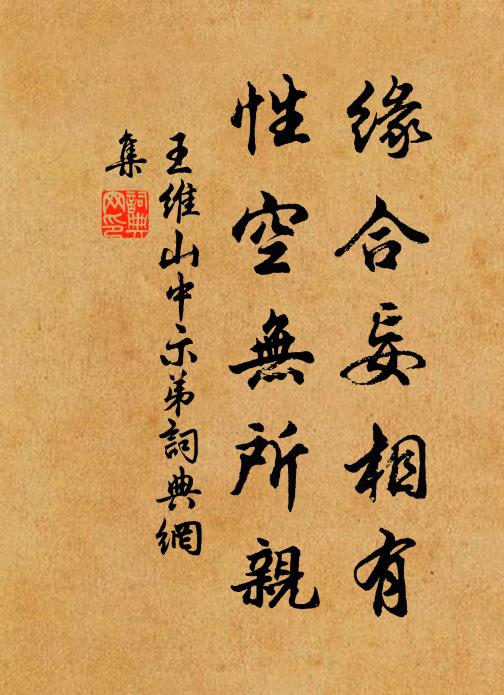 緣合妄相有
性空無所親
王維山中示弟詞典網
集
詞典
网印